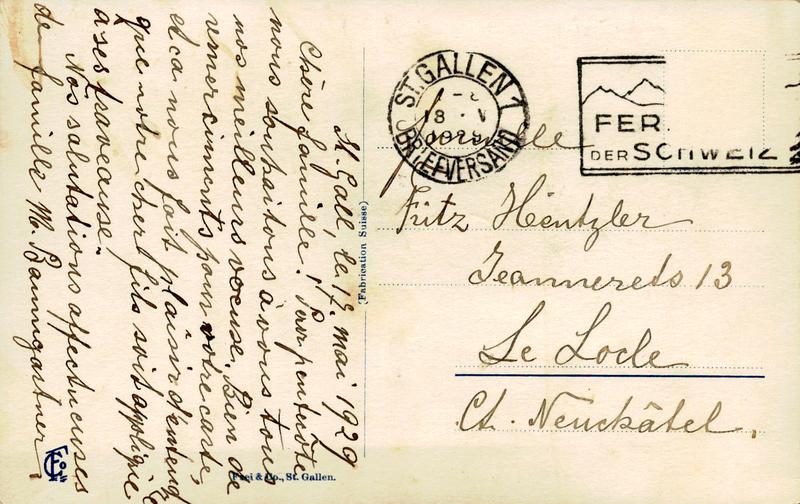 St. Gall, le 17. mai 1929
Chère famille! Pour pentecôte
nous souhaitons à vous tous
nos meilleurs vœuse. Bien de
remerciments pour votre carte,
et ca nous fait plaisir d'entend
que notre chert fils soit appliqué
à ses traveause.
Nos salutations affectueuses
de famille M. Baumgartner
(Fabrication Suisse)
Frei & Co., St. Gallen.
ST. GALLEN 1
18. V
BRIEFVERSAND
FER
DER SCHWEIZ
Famille
Fritz Hentzler
Jeannerets 13
Le Locle
Ct. Neuckâtel.